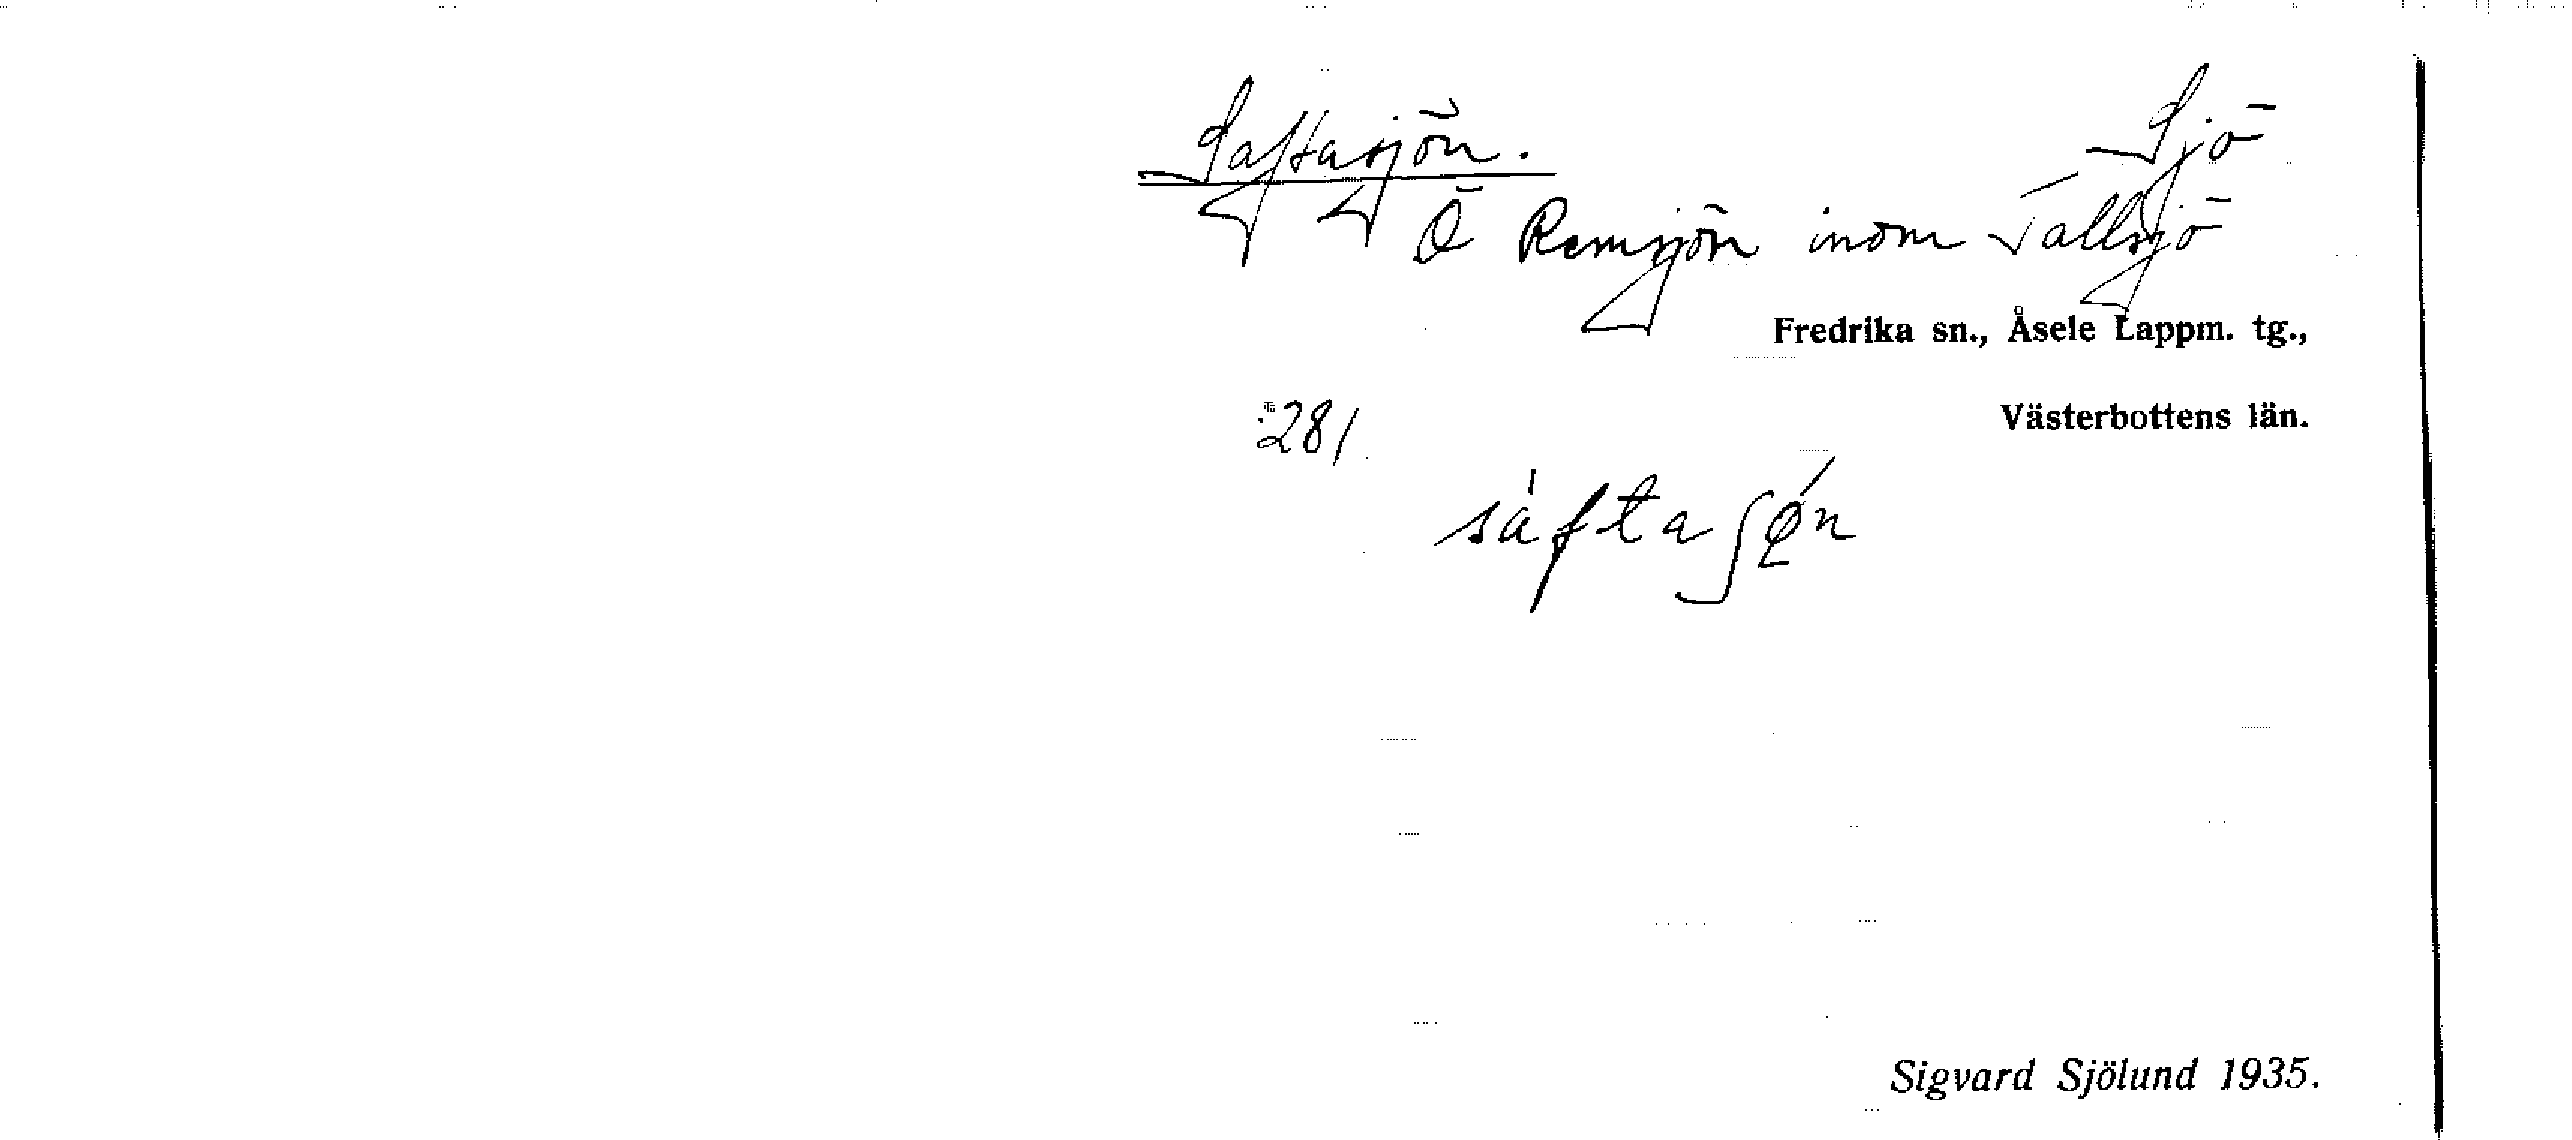 Saftasjön. Sjö
Ö Remsjön inom Tallsjö
Fredrika sn., Åsele Lappm. tg.,
281 Västerbottens län.
sàftaʃǿn
Sigvard Sjölund 1935.